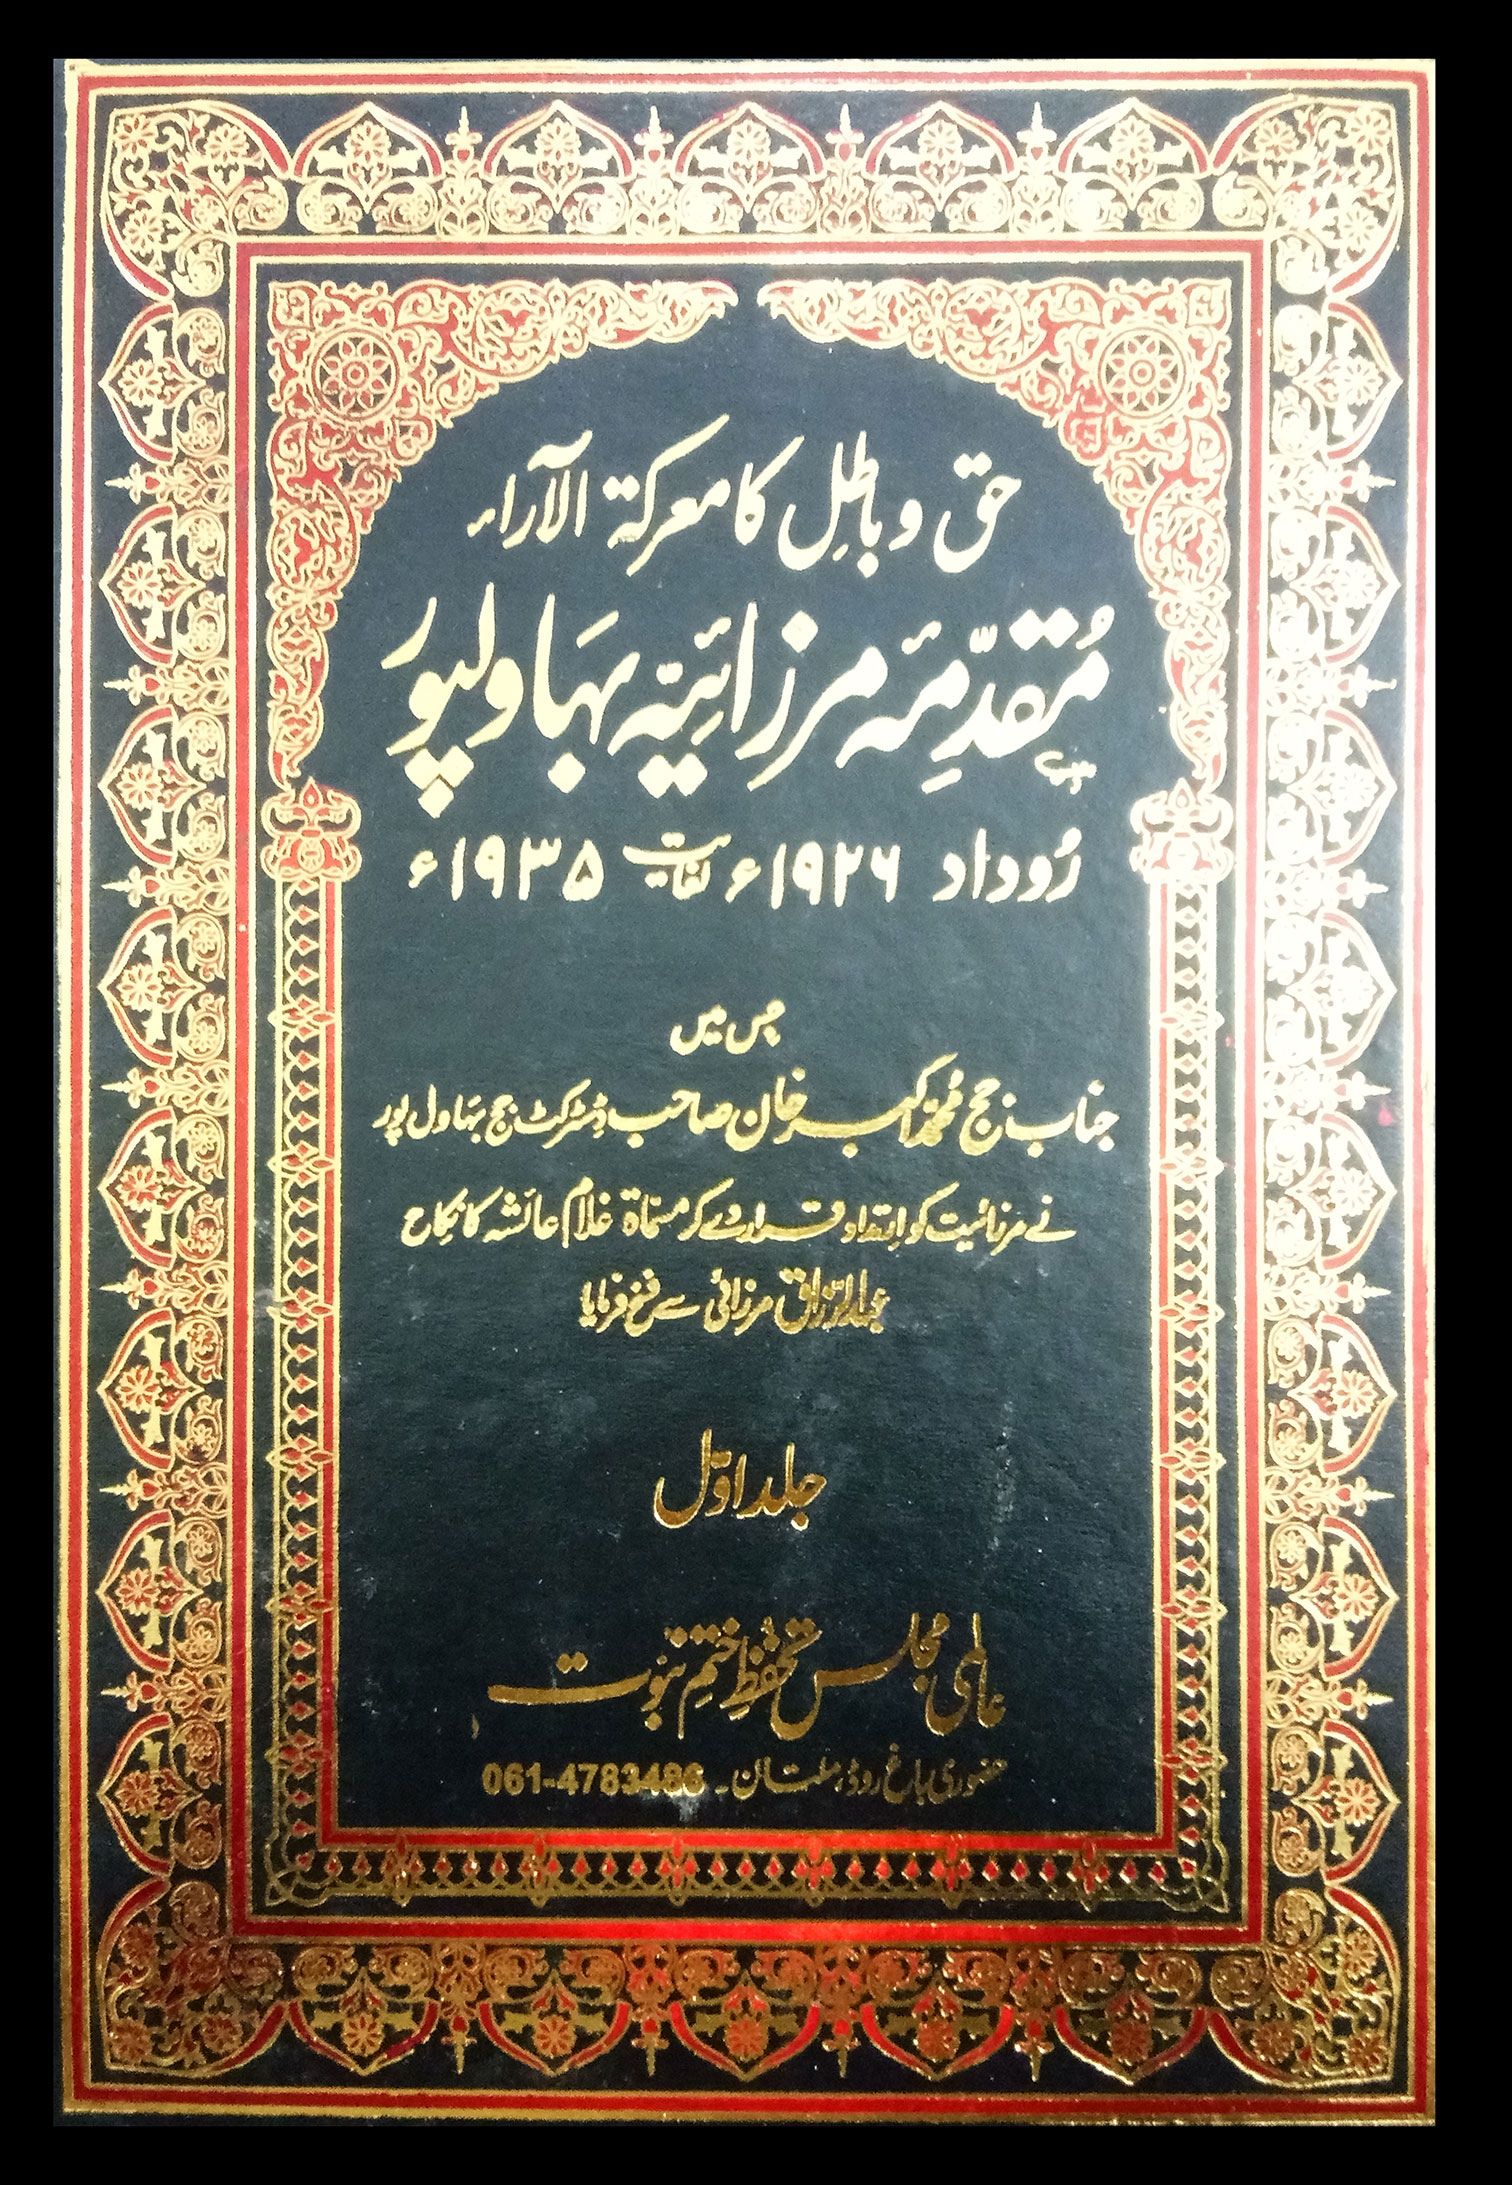 حق و باطِل کا معرکۃ الآراء
مُقدّمِئہ مرزائیّہ بہاولپور
رُوداد ۱۹۲۶ء لغایت ۱۹۳۵ء
جس میں
جناب جج مُحمّد اکبر خان صاحب ڈسٹرکٹ جج بہاول پور
نے مرزائیت کو اِرتداد قرار دے کر مسمّاۃ غلام عائشہ کا نکاح
عبدالرّزاق مرزائی سے فسخ فرمایا
جلد اوّل
عالمی مجلس تحفّظِ ختمِ نبوّت
حضوری باغ روڈ، ملتان۔ 061-4783486